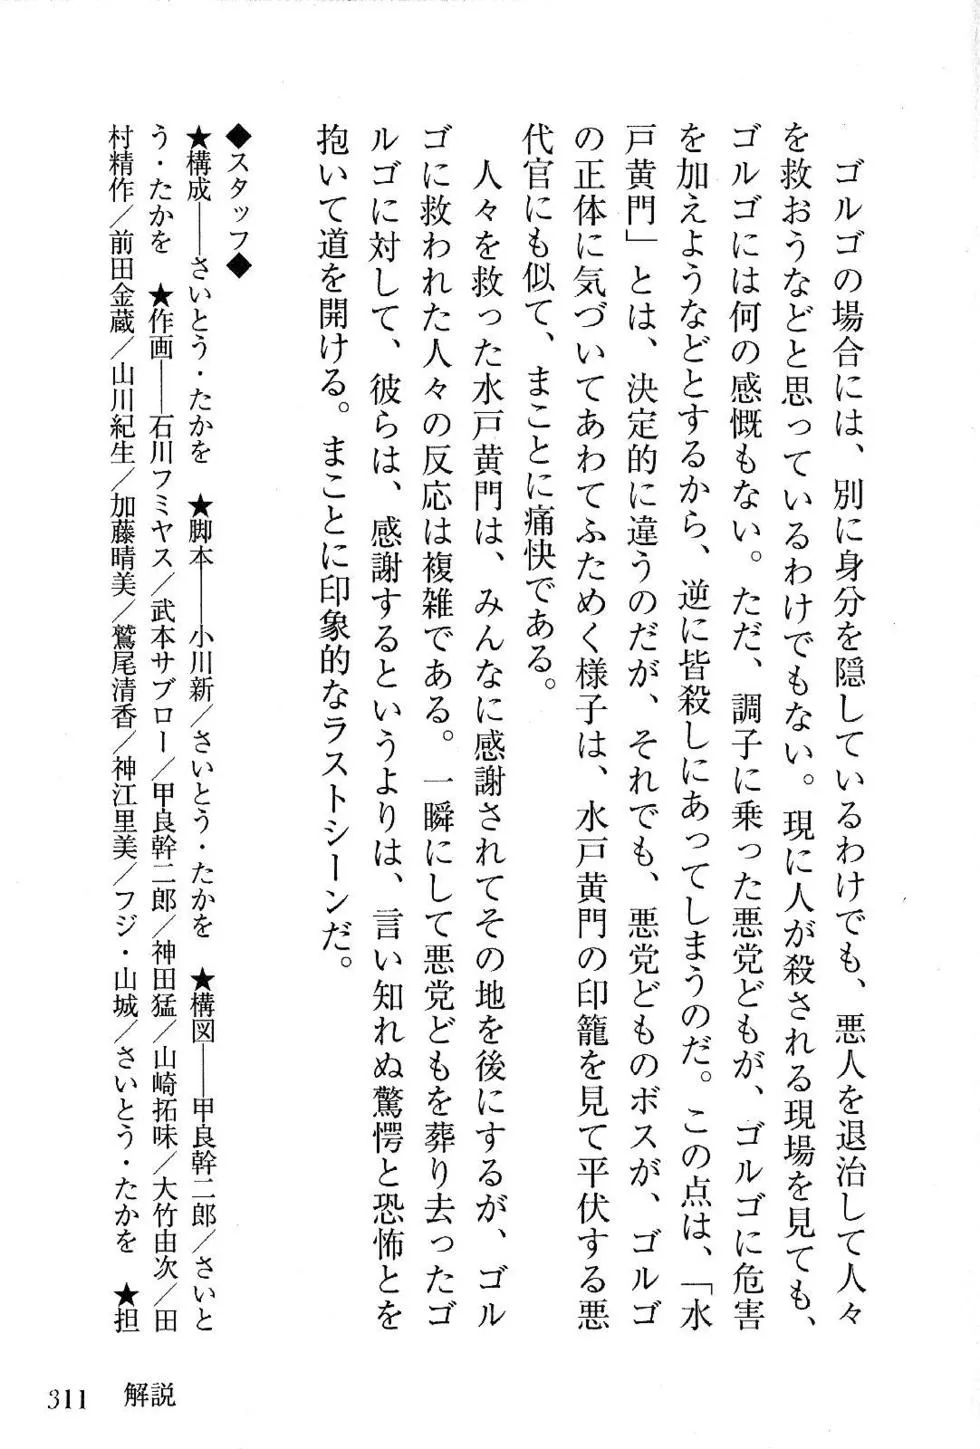 ゴルゴの場合には、別に身分を隠しているわけでも、悪人を退治して人々
を救おうなどと思っているわけでもない。現に人が殺される現場を見ても、
ゴルゴには何の感慨もない。ただ、調子に乗った悪党どもが、ゴルゴに危害
を加えようなどとするから、逆に皆殺しにあってしまうのだ。この点は、「水
戸黄門」とは、決定的に違うのだが、それでも、悪党どものボスが、ゴルゴ
の正体に気づいてあわてふためく様子は、水戸黄門の印籠を見て平伏する悪
代官にも似て、まことに痛快である。
人々を救った水戸黄門は、みんなに感謝されてその地を後にするが、ゴル
ゴに救われた人々の反応は複雑である。一瞬にして悪党どもを葬り去ったゴ
ルゴに対して、彼らは、感謝するというよりは、言い知れぬ驚愕と恐怖とを
抱いて道を開ける。まことに印象的なラストシーンだ。
◆スタッフ◆
★構成──さいとう・たかを ★脚本──小川新/さいとう・たかを ★構図──甲良幹二郎/さいと
う・たかを ★作画──石川フミヤス/武本サブロー/甲良幹二郎/神田猛/山崎拓味/大竹由次/田
村精作/前田金蔵/山川紀生/加藤晴美/鷲尾清香/神江里美/フジ・山城/さいとう・たかを ★担
311 解説